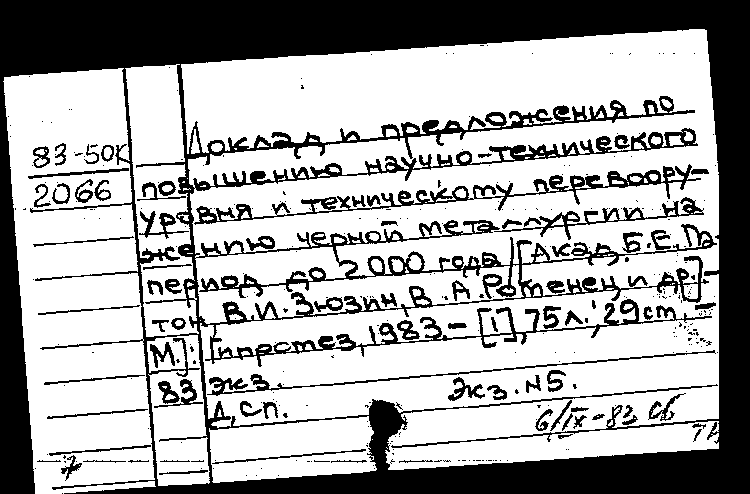 Доклад и предложения по
83-50К
повышению научно-технического
2066
уровня и техническому перевоору-
жению черной металлургии на
период до 2000 года / [Акад. Б.Е. Па-
тон, В.И. Зюзин, В.А. Роменец и др.]. -
[М.]: Гипромез, 1983. - [1], 75 л.; 29 см. -
83 экз.
Д.сп.
Экз. №5.
6/IX-83